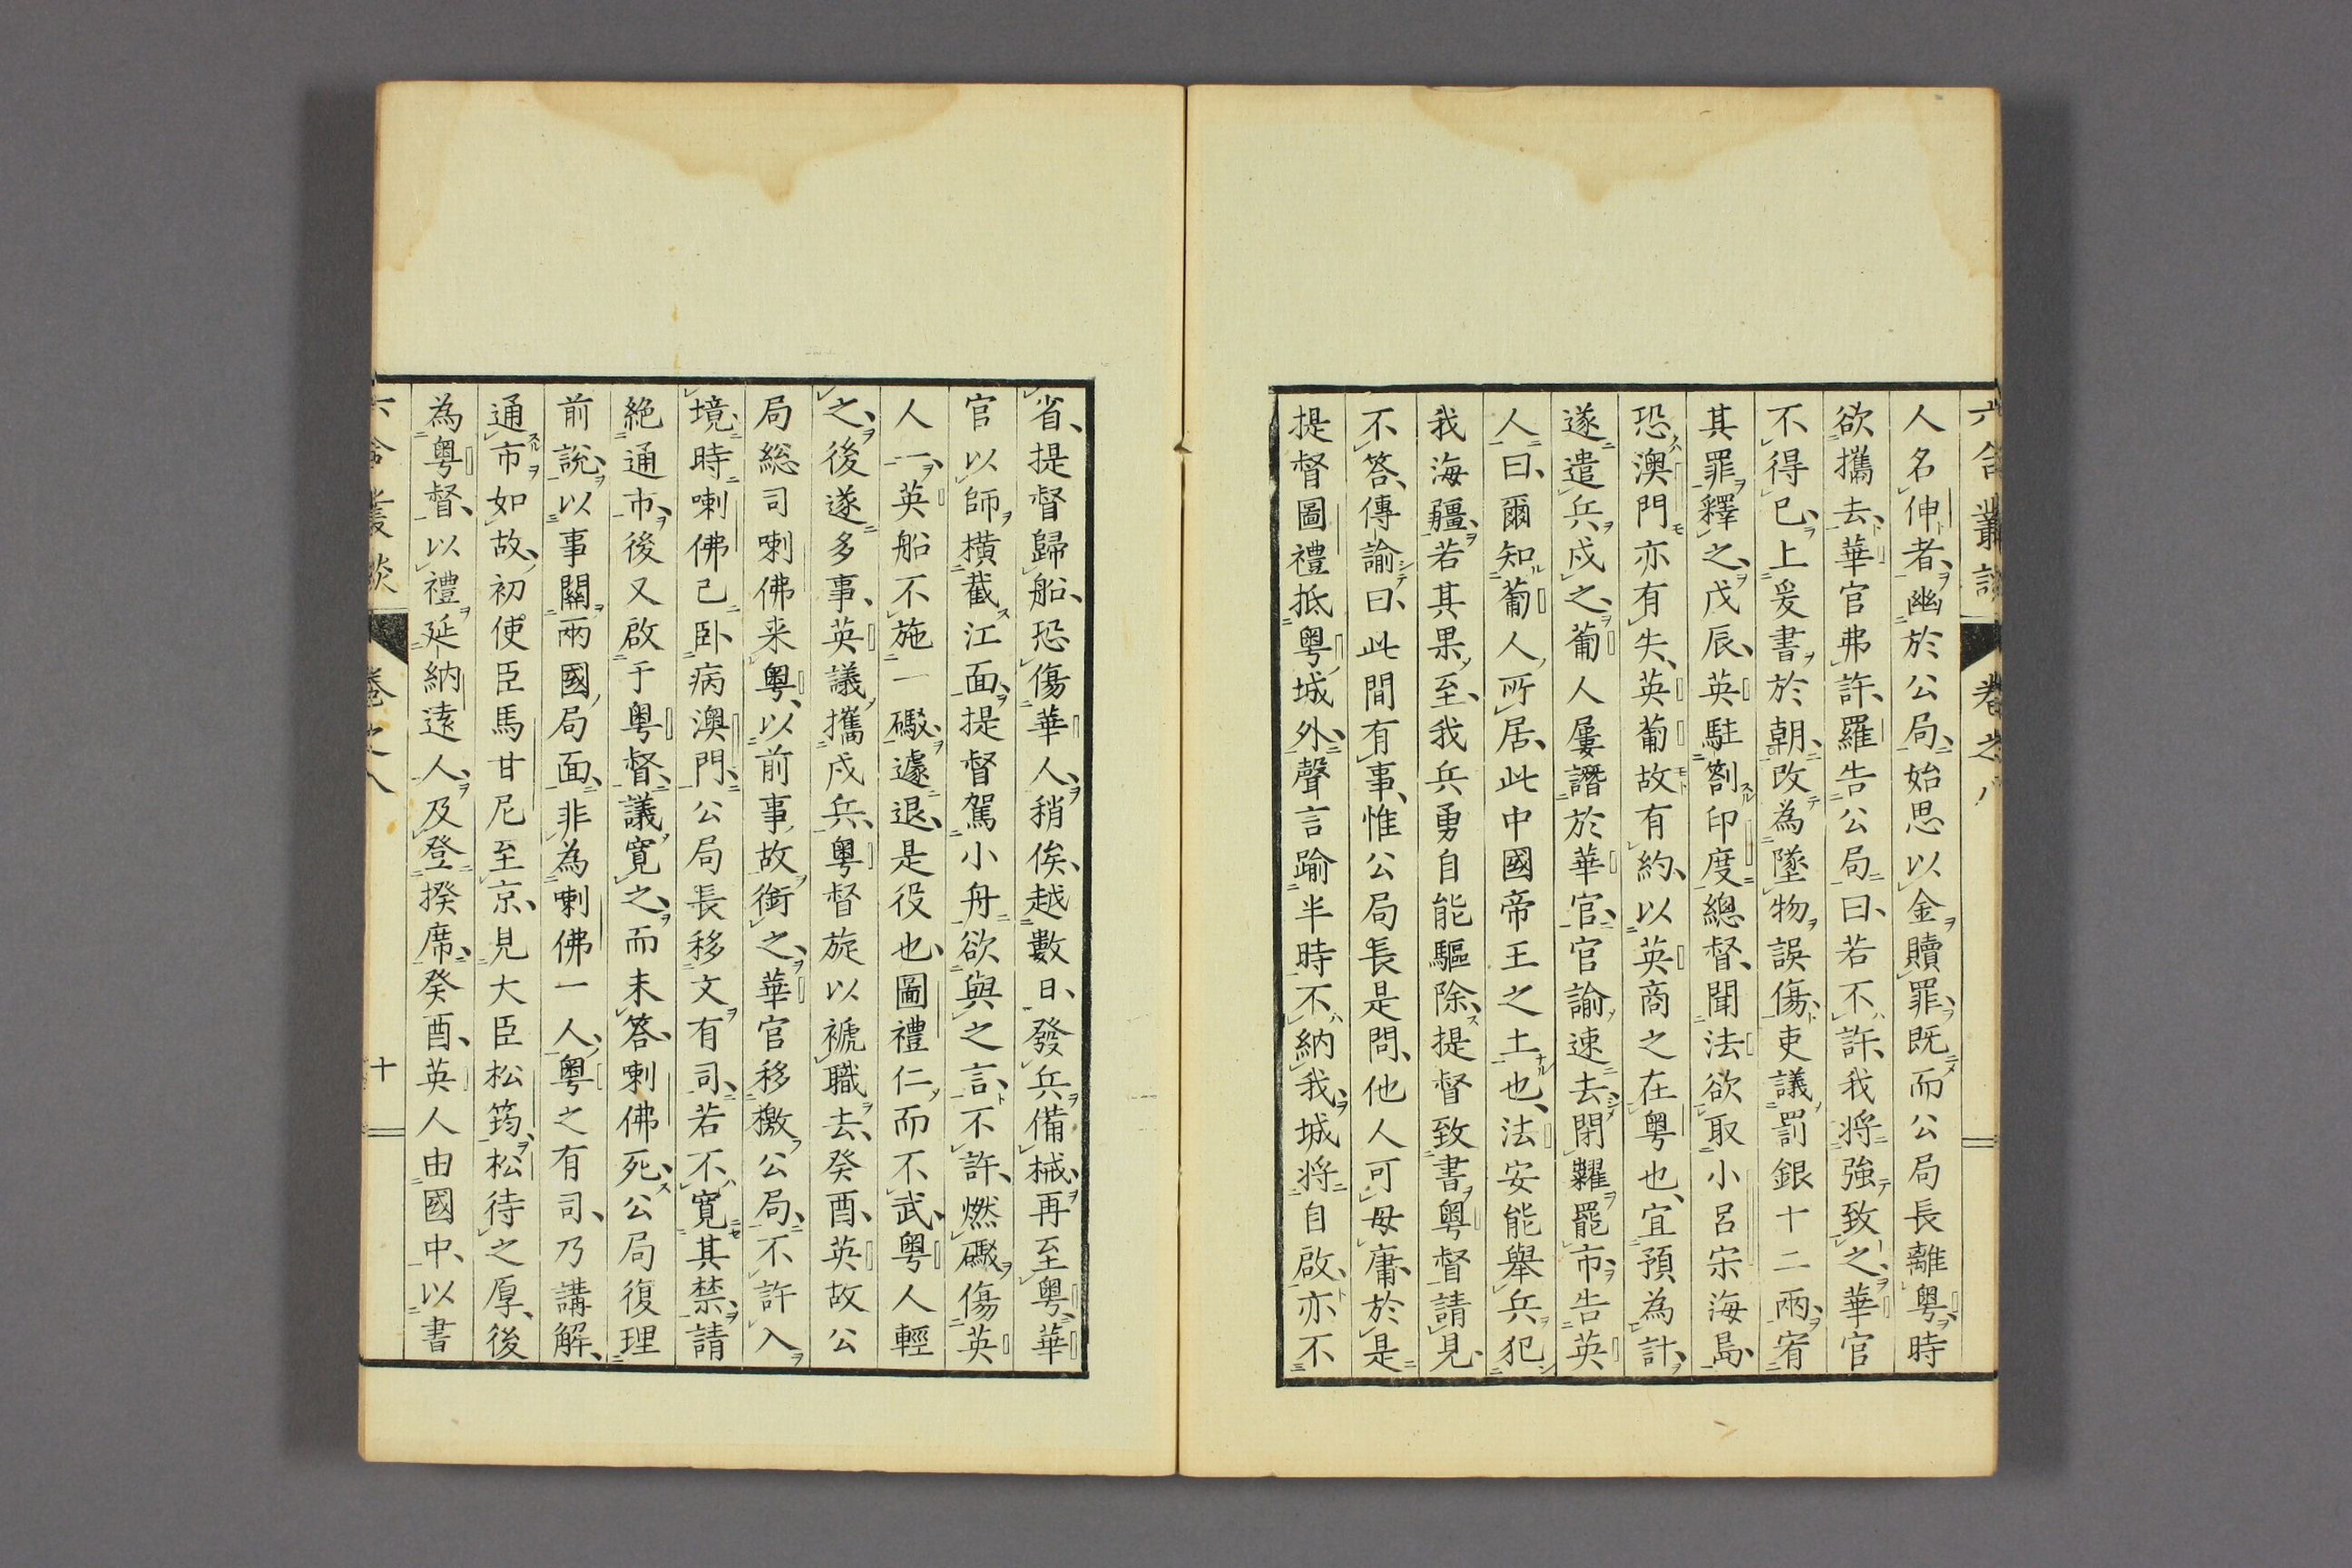 六合叢談 卷之八
人名伸者幽於公局始思以金贖罪既而公局長離粵時
欲攜去華官弗許羅告公局曰若不許我將強致之華官
不得已上爰書於朝改為墜物誤傷吏議罰銀十二兩宥
其罪釋之戊辰英駐劄印度總督聞法欲取小呂宋海島
恐澳門亦有失英葡故有約以英商之在粵也宜預為計
遂遣兵戍之葡人屢譖於華官官諭速去閉糶罷市告英
人曰爾知葡人所居此中國帝王之土也法安能舉兵犯
我海疆若其果至我兵勇自能驅除提督致書粵督請見
不答傳諭曰此間有事惟公局長是問他人可毋庸於是
提督圖禮抵粵城外聲言踰半時不納我城將自啟亦不
省提督歸船恐傷華人稍俟越數日發兵備械再至粵華
官以師橫截江面提督駕小舟欲與之言不許燃礮傷英
人一英船不施一礮遽退是役也圖禮仁而不武粵人輕
之後遂多事英議攜戍兵粵督旋以褫職去癸酉英故公
局總司喇佛来粵以前事故銜之華官移檄公局不許入
境時喇佛已臥病澳門公局長移文有司若不寬其禁請
絕通市後又啟于粵督議寬之而未答喇佛死公局復理
前說以事關兩國局面非為喇佛一人粵之有司乃講解
通市如故初使臣馬甘尼至京見大臣松筠松待之厚後
為粵督以禮延納遠人及登揆席癸酉英人由國中以書
六合叢談 卷之八 十